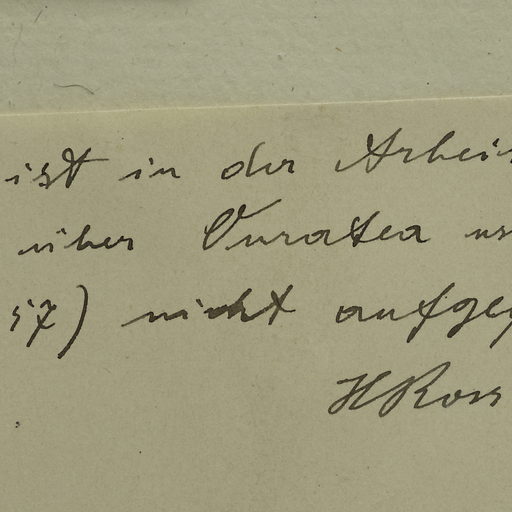 ist in der Arbeit
über Ouratea
57) nicht aufge
H Ross